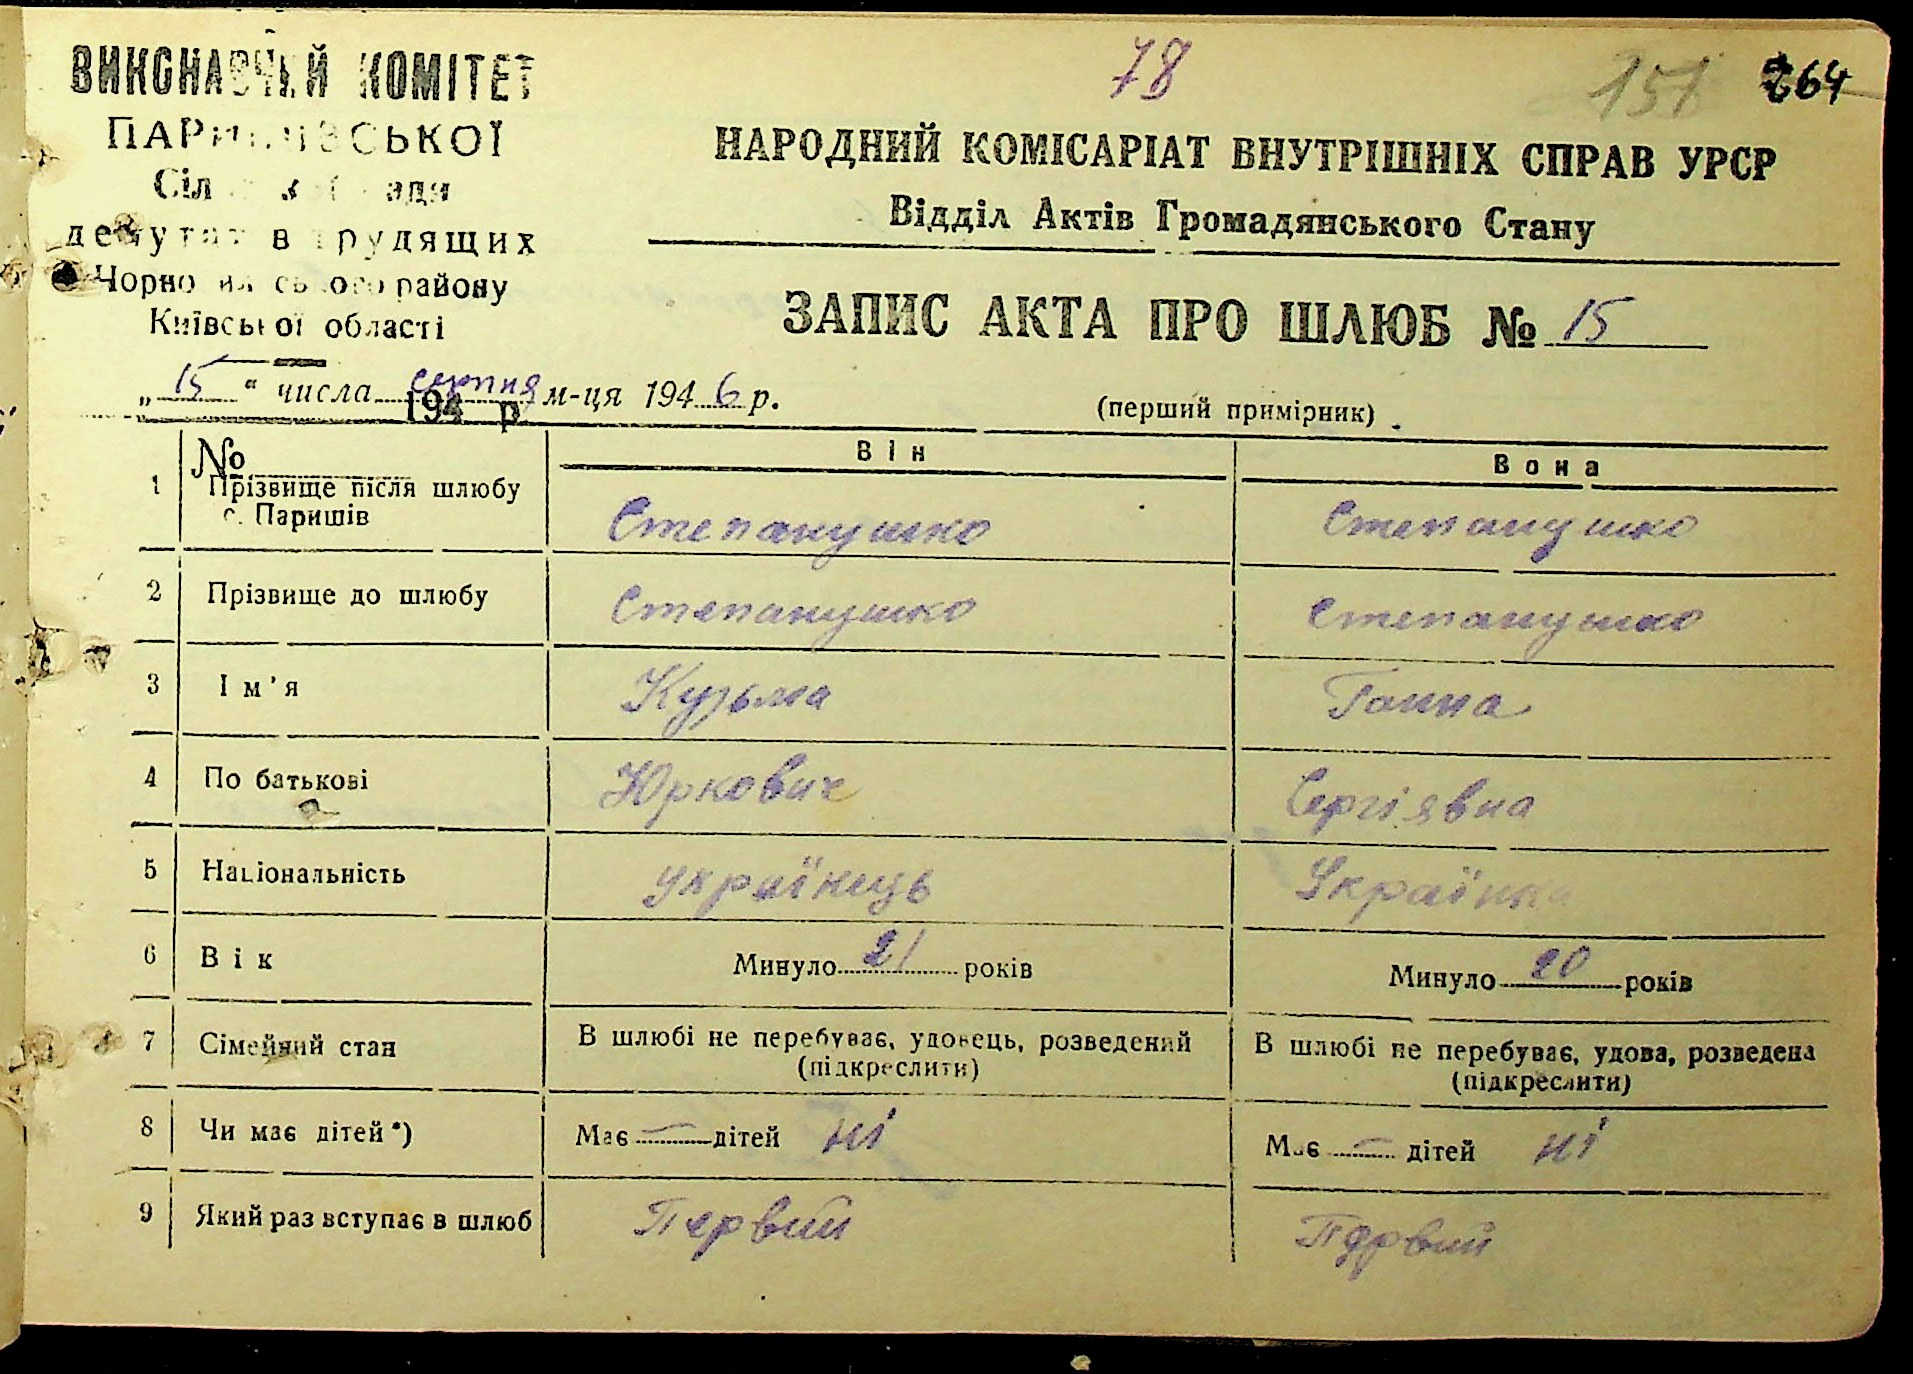 78
151 264
ВИКОНАВЧИЙ КОМІТЕТ
ПАРИШІВСЬКОЇ
депутатів трудящих
Чорнобильського району
Київської області
194 р.
№
с. Паришів
НАРОДНИЙ КОМІСАРІАТ ВНУТРІШНІХ СПРАВ УРСР
Відділ Актів Громадянського Стану
ЗАПИС АКТА ПРО ШЛЮБ № 15
„ 15 “ числа серпня м-ця 1946 р.
(перший примірник)
Він Вона
1 Прізвище після шлюбу Степанушко Степанушко
2 Прізвище до шлюбу Степанушко Степанушко
3 Ім’я Кузьма Ганна
4 По батькові Юркович Сергіявна
5 Національність українець Українка
6 Вік Минуло 21 років Минуло 20 років
7 Сімейний стан В шлюбі не перебуває, удовець, розведений В шлюбі не перебуває, удова, розведена
(підкреслити) (підкреслити)
8 Чи має дітей*) Має — дітей ні Має — дітей ні
9 Який раз вступає в шлюб Первий Первий